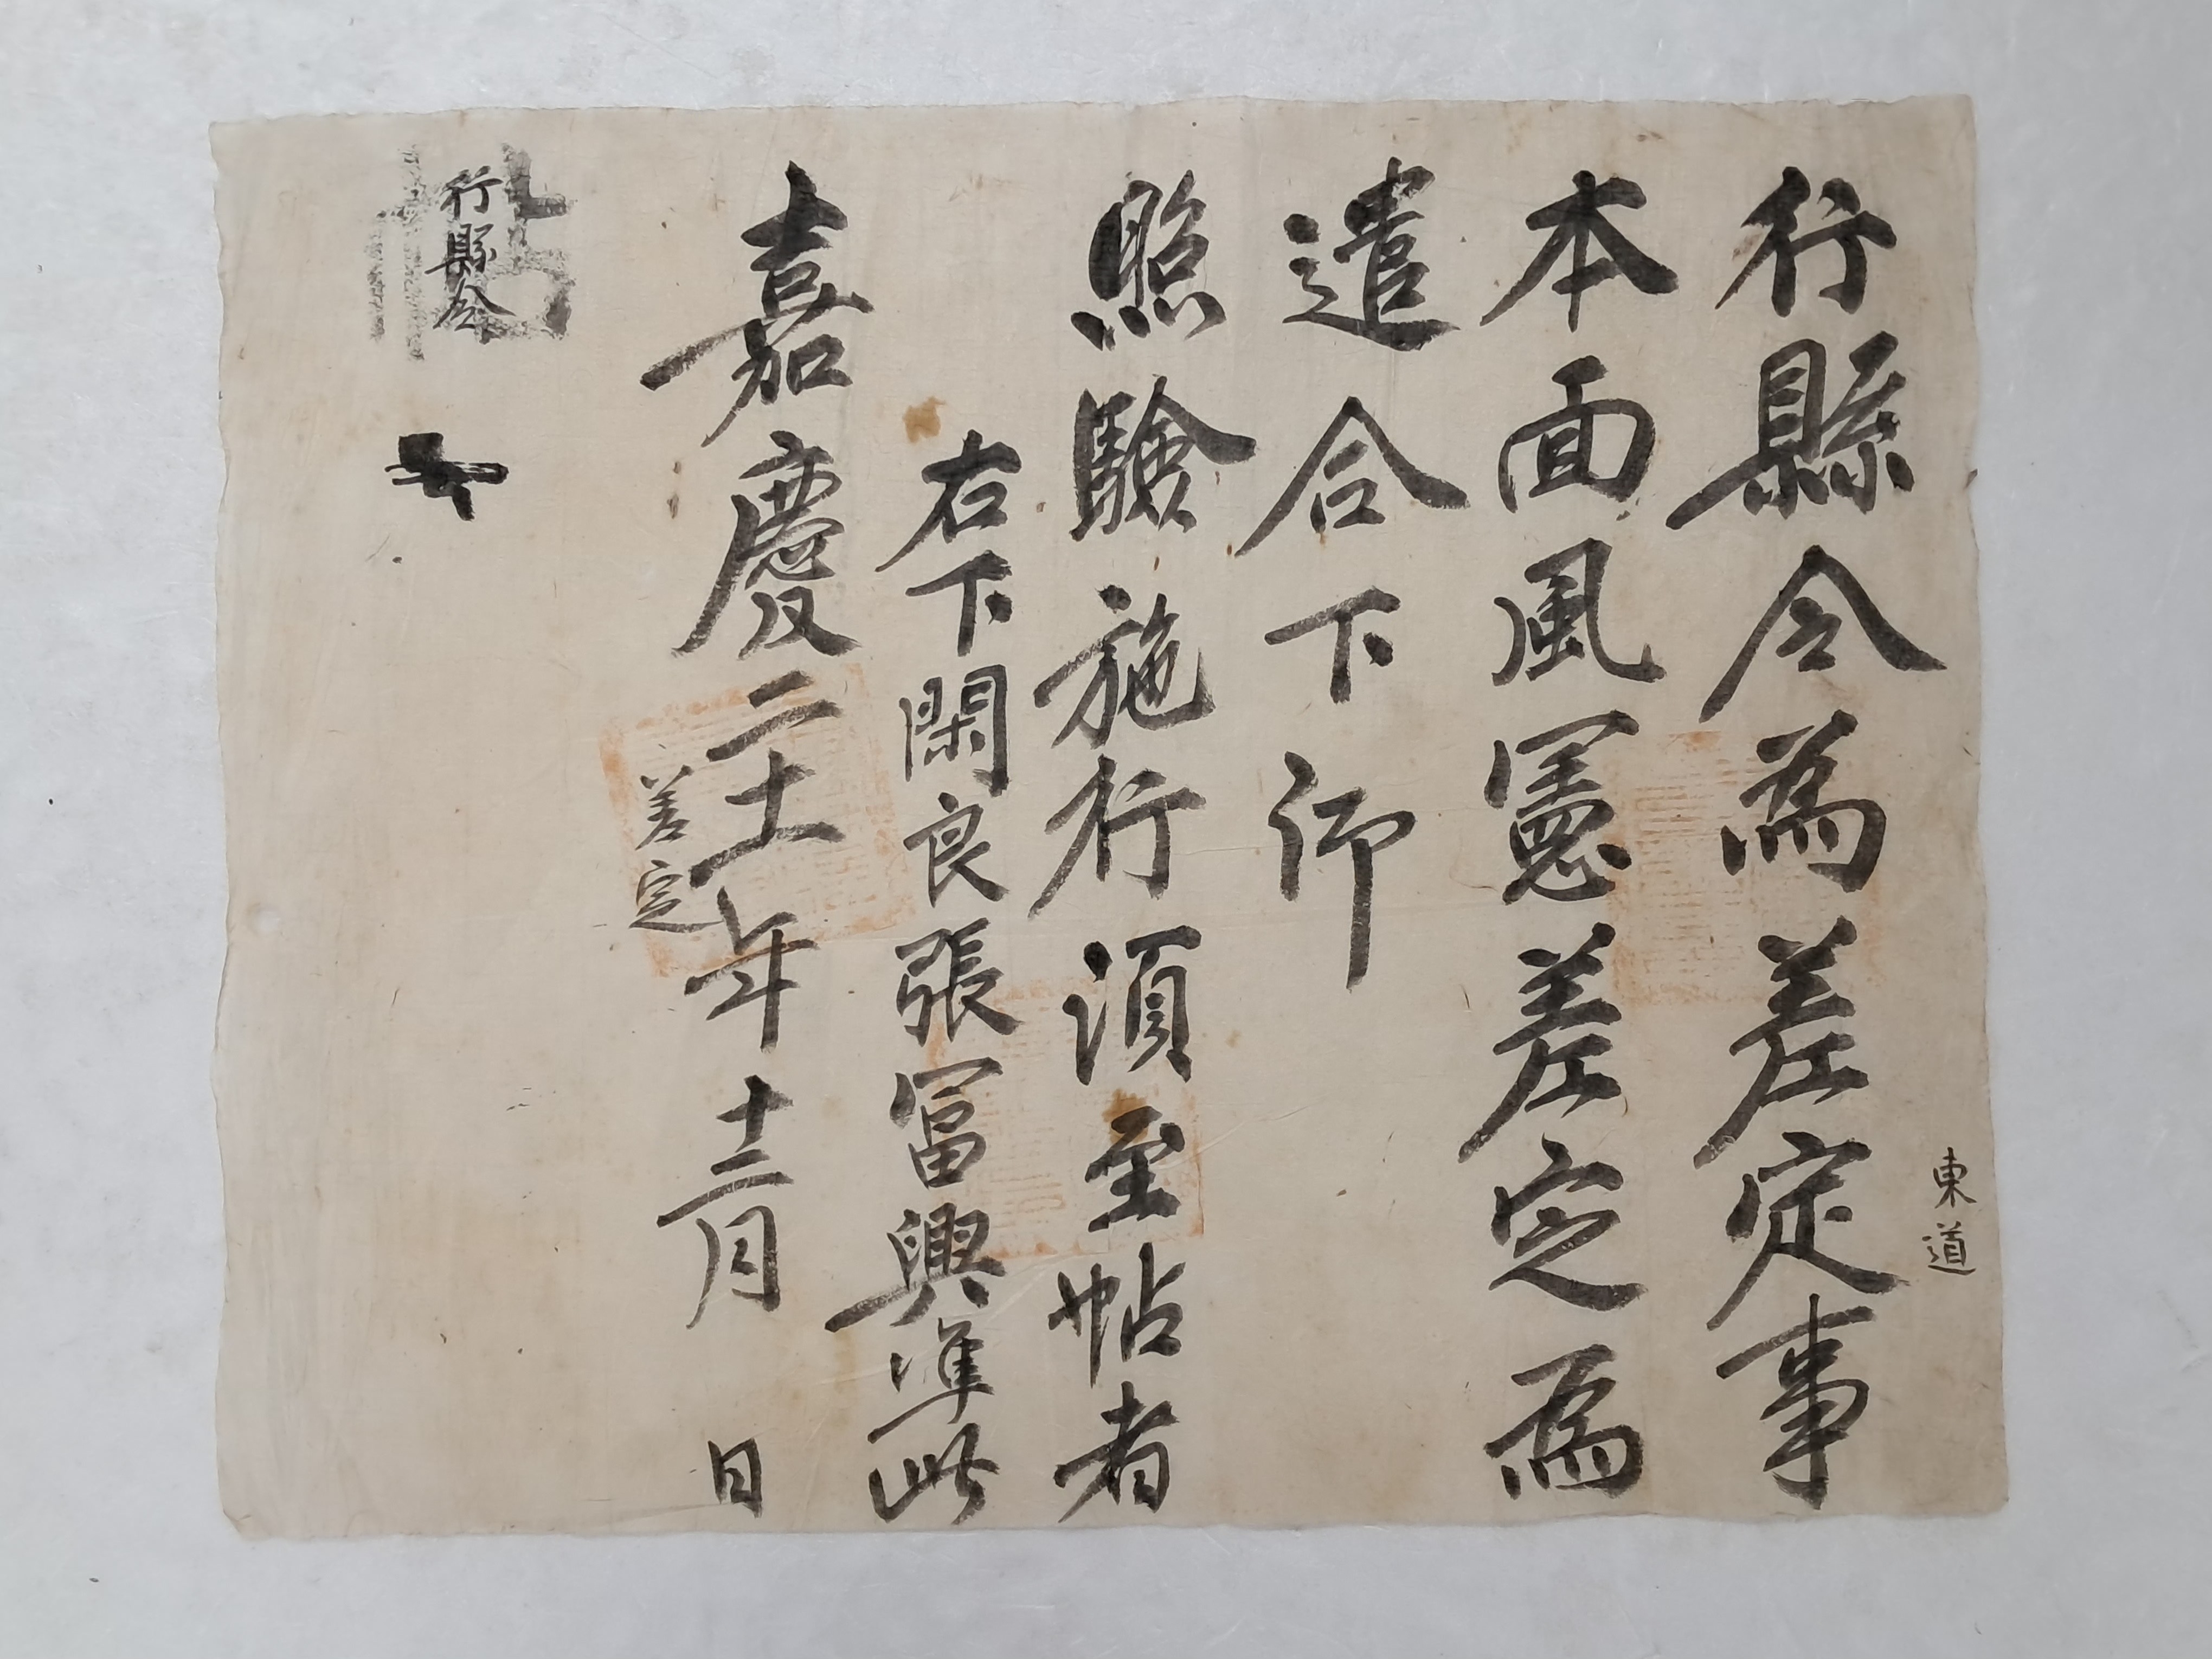 東道
行縣令爲差定事
本面風憲差定爲
遣合下仰
照驗施行須至帖者
右下閑良張冨興準此
嘉慶二十一年十二月 日
差定
帖
行縣令